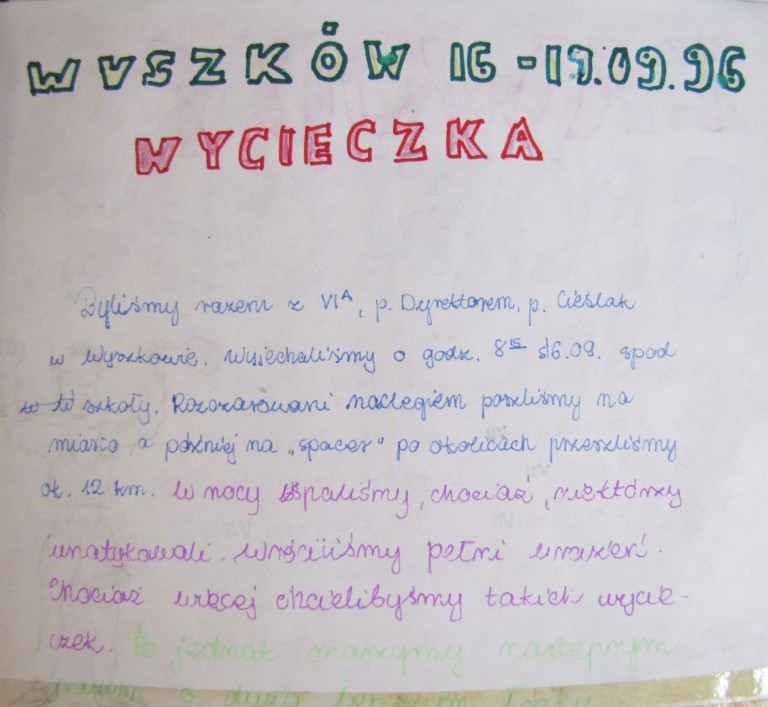 WYSZKÓW 16-17.09.96
WYCIECZKA
Byliśmy razem z VI A, p. Dyrektorem, p. Cieślak
w Wyszkowie. Wyjechaliśmy o godz. 8 15 16.09. spod
szkoły. Rozczarowani noclegiem poszliśmy na
miasto a później na „spacer” po okolicach przeszliśmy
ok. 12 km. W nocy spaliśmy, chociaż, niektórzy
Wróciliśmy pełni wrażeń.
Chociaż więcej chcielibyśmy takich wycie-
czek. To jednak marzymy następnym
razem o dużo lepszym